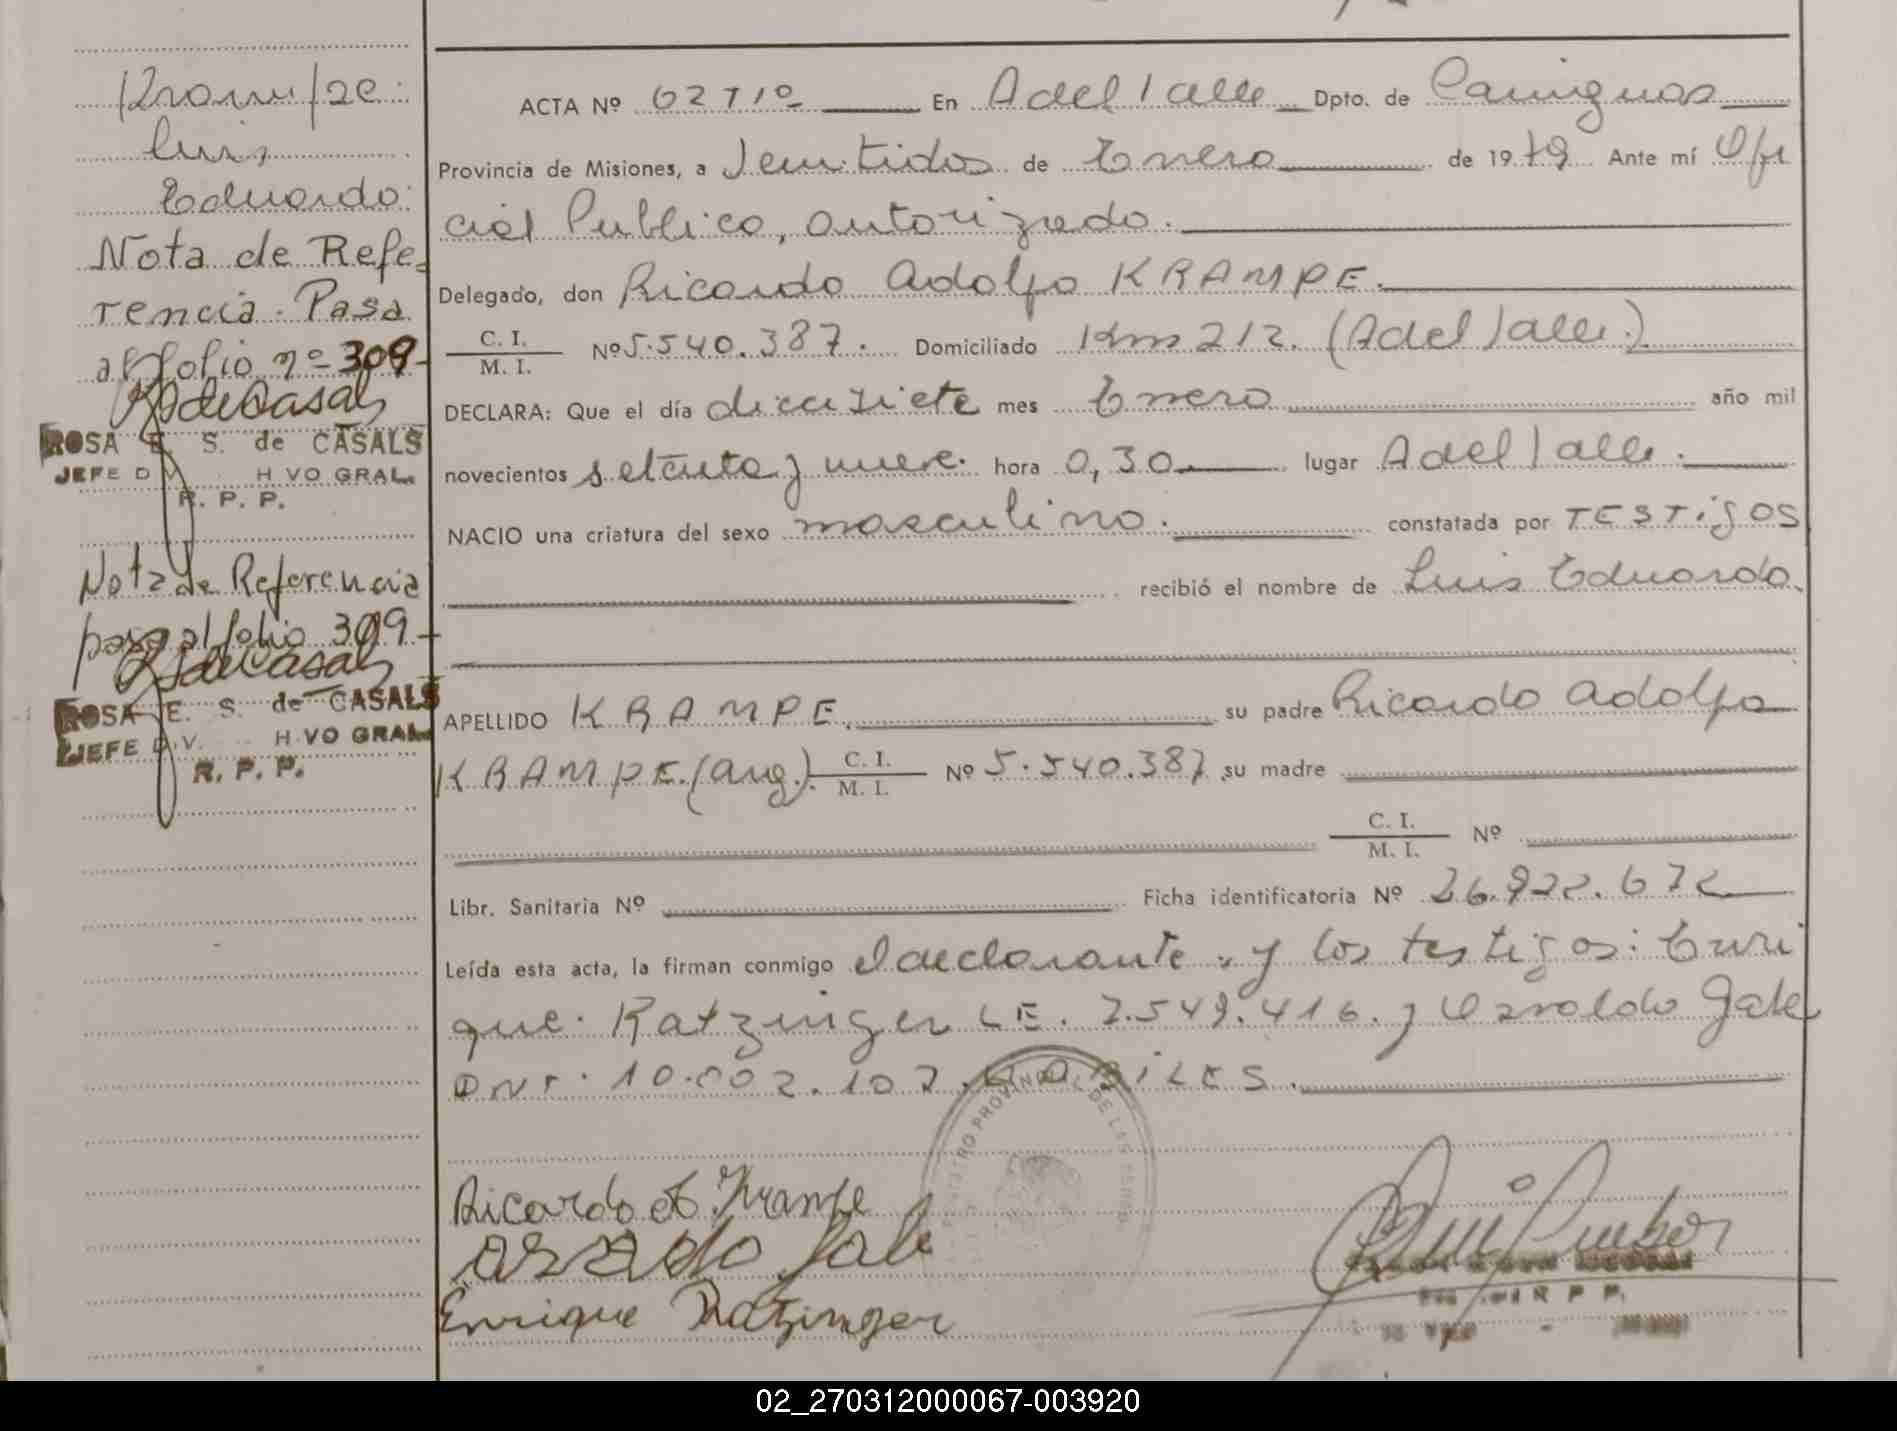 Krampe
Luis
Eduardo
Nota de Refe-
rencia. Pasa
al folio nº 309-
RSdeCasals
ROSA E. S. de CASALS
JEFE DIV. H VO GRAL.
R. P. P.
Nota de Referencia
pasa al folio 309-
RSdeCasals
ROSA E. S. de CASALS
JEFE DIV. H VO GRAL.
R. P. P.
ACTA Nº 0271º En A del Valle Dpto. de Cainguas
Provincia de Misiones, a Veintidos de Enero de 1979 Ante mí Ofi
cial Publico, autorizado.
Delegado, don Ricardo Adolfo KRAMPE.
C. I.
M. I. Nº 5.540.387. Domiciliado Km 212. (A del Valle.)
DECLARA: Que el día diecisiete mes Enero año mil
novecientos setenta y nueve. hora 0,30 lugar A del Valle.
NACIO una criatura del sexo masculino. constatada por TESTigos
recibió el nombre de Luis Eduardo.
APELLIDO KRAMPE. su padre Ricardo Adolfo
KRAMPE. (arg.) C. I. M. I. Nº 5.540.387 su madre
C. I. M. I. Nº
Libr. Sanitaria Nº Ficha identificatoria Nº 26.922.672
Leída esta acta, la firman conmigo el declarante y los testigos: Enri
que Ratzinger LE. 7.549.416. y Osvaldo Gale
DNI. 10.002.107. HABILES.
REGISTRO PROVINCIAL DE LAS PERSO
Ricardo A. Krampe
Osvaldo Gale
Enrique Ratzinger
R P P.
02_270312000067-003920